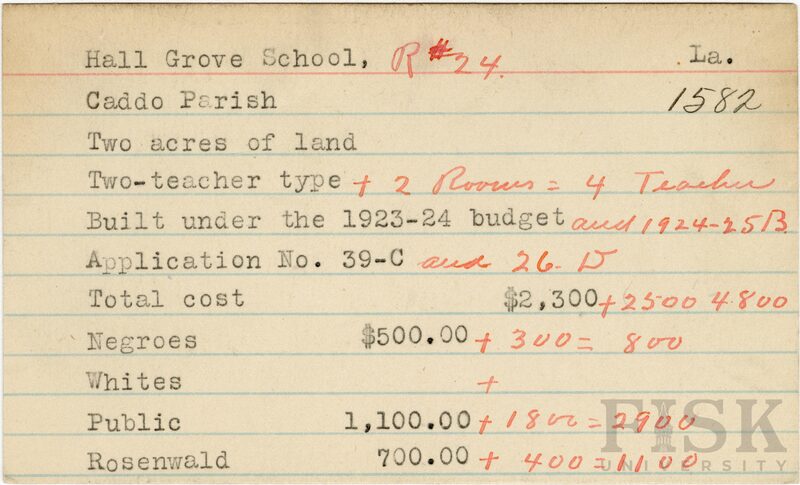 Hall Grove School, R#24. La.
Caddo Parish 1582
Two acres of land
Two-teacher type + 2 Rooms = 4 Teacher
Built under the 1923-24 budget and 1924-25B.
Application No. 39-C and 26-D
Total cost $2,300 + 2500 4800
Negroes $500.00 + 300 = 800
Whites +
Public 1,100.00 + 1800 = 2900
Rosenwald 700.00 + 400 = 1100
FISK
UNIVERSITY